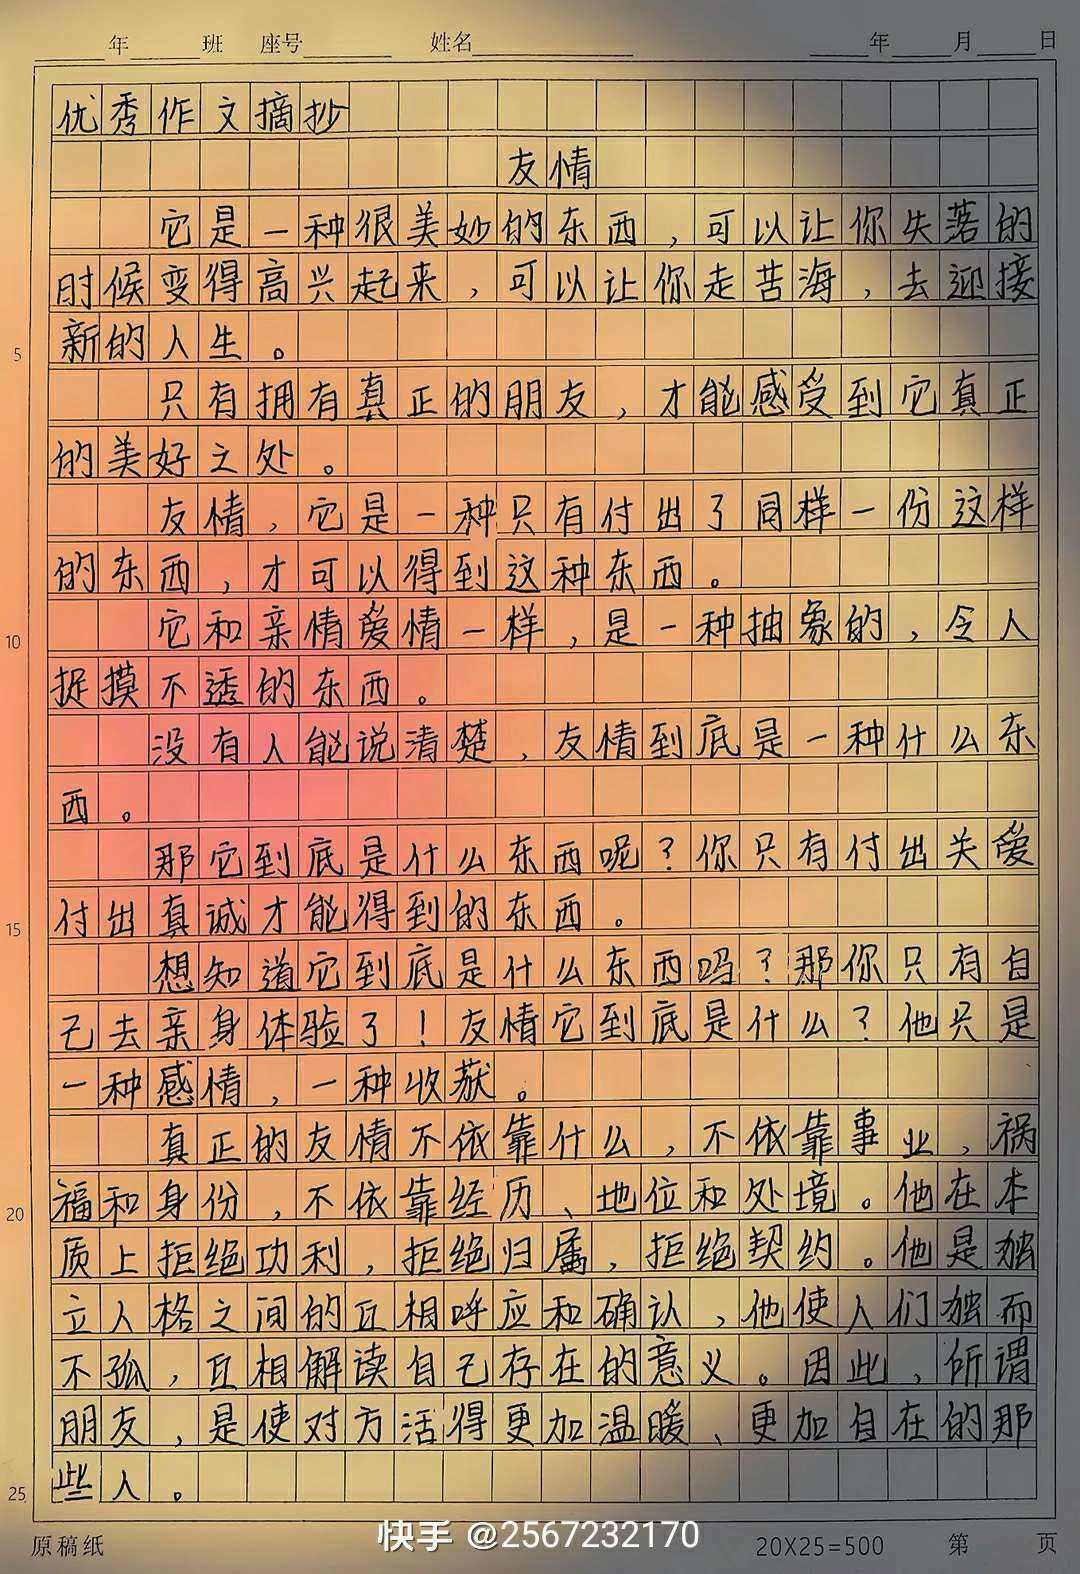 年 班 座号 姓名 年 月 日
优秀作文摘抄
友情
它是一种很美妙的东西，可以让你失落的
时候变得高兴起来，可以让你走苦海，去迎接
5 新的人生。
只有拥有真正的朋友，才能感受到它真正
的美好之处。
友情，它是一种只有付出了同样一份这样
的东西，才可以得到这种东西。
10 它和亲情爱情一样，是一种抽象的，令人
捉摸不透的东西。
没有人能说清楚，友情到底是一种什么东
西。
那它到底是什么东西呢？你只有付出关爱
15 付出真诚才能得到的东西。
想知道它到底是什么东西吗？那你只有自
己去亲身体验了！友情它到底是什么？他只是
一种感情，一种收获。
真正的友情不依靠什么，不依靠事业，祸
20 福和身份，不依靠经历、地位和处境。他在本
质上拒绝功利，拒绝归属，拒绝契约。他是独
立人格之间的互相呼应和确认，他使人们独而
不孤，互相解读自己存在的意义。因此，所谓
朋友，是使对方活得更加温暖、更加自在的那
25 些人。
快手 @2567232170
原稿纸 20X25=500 第 页